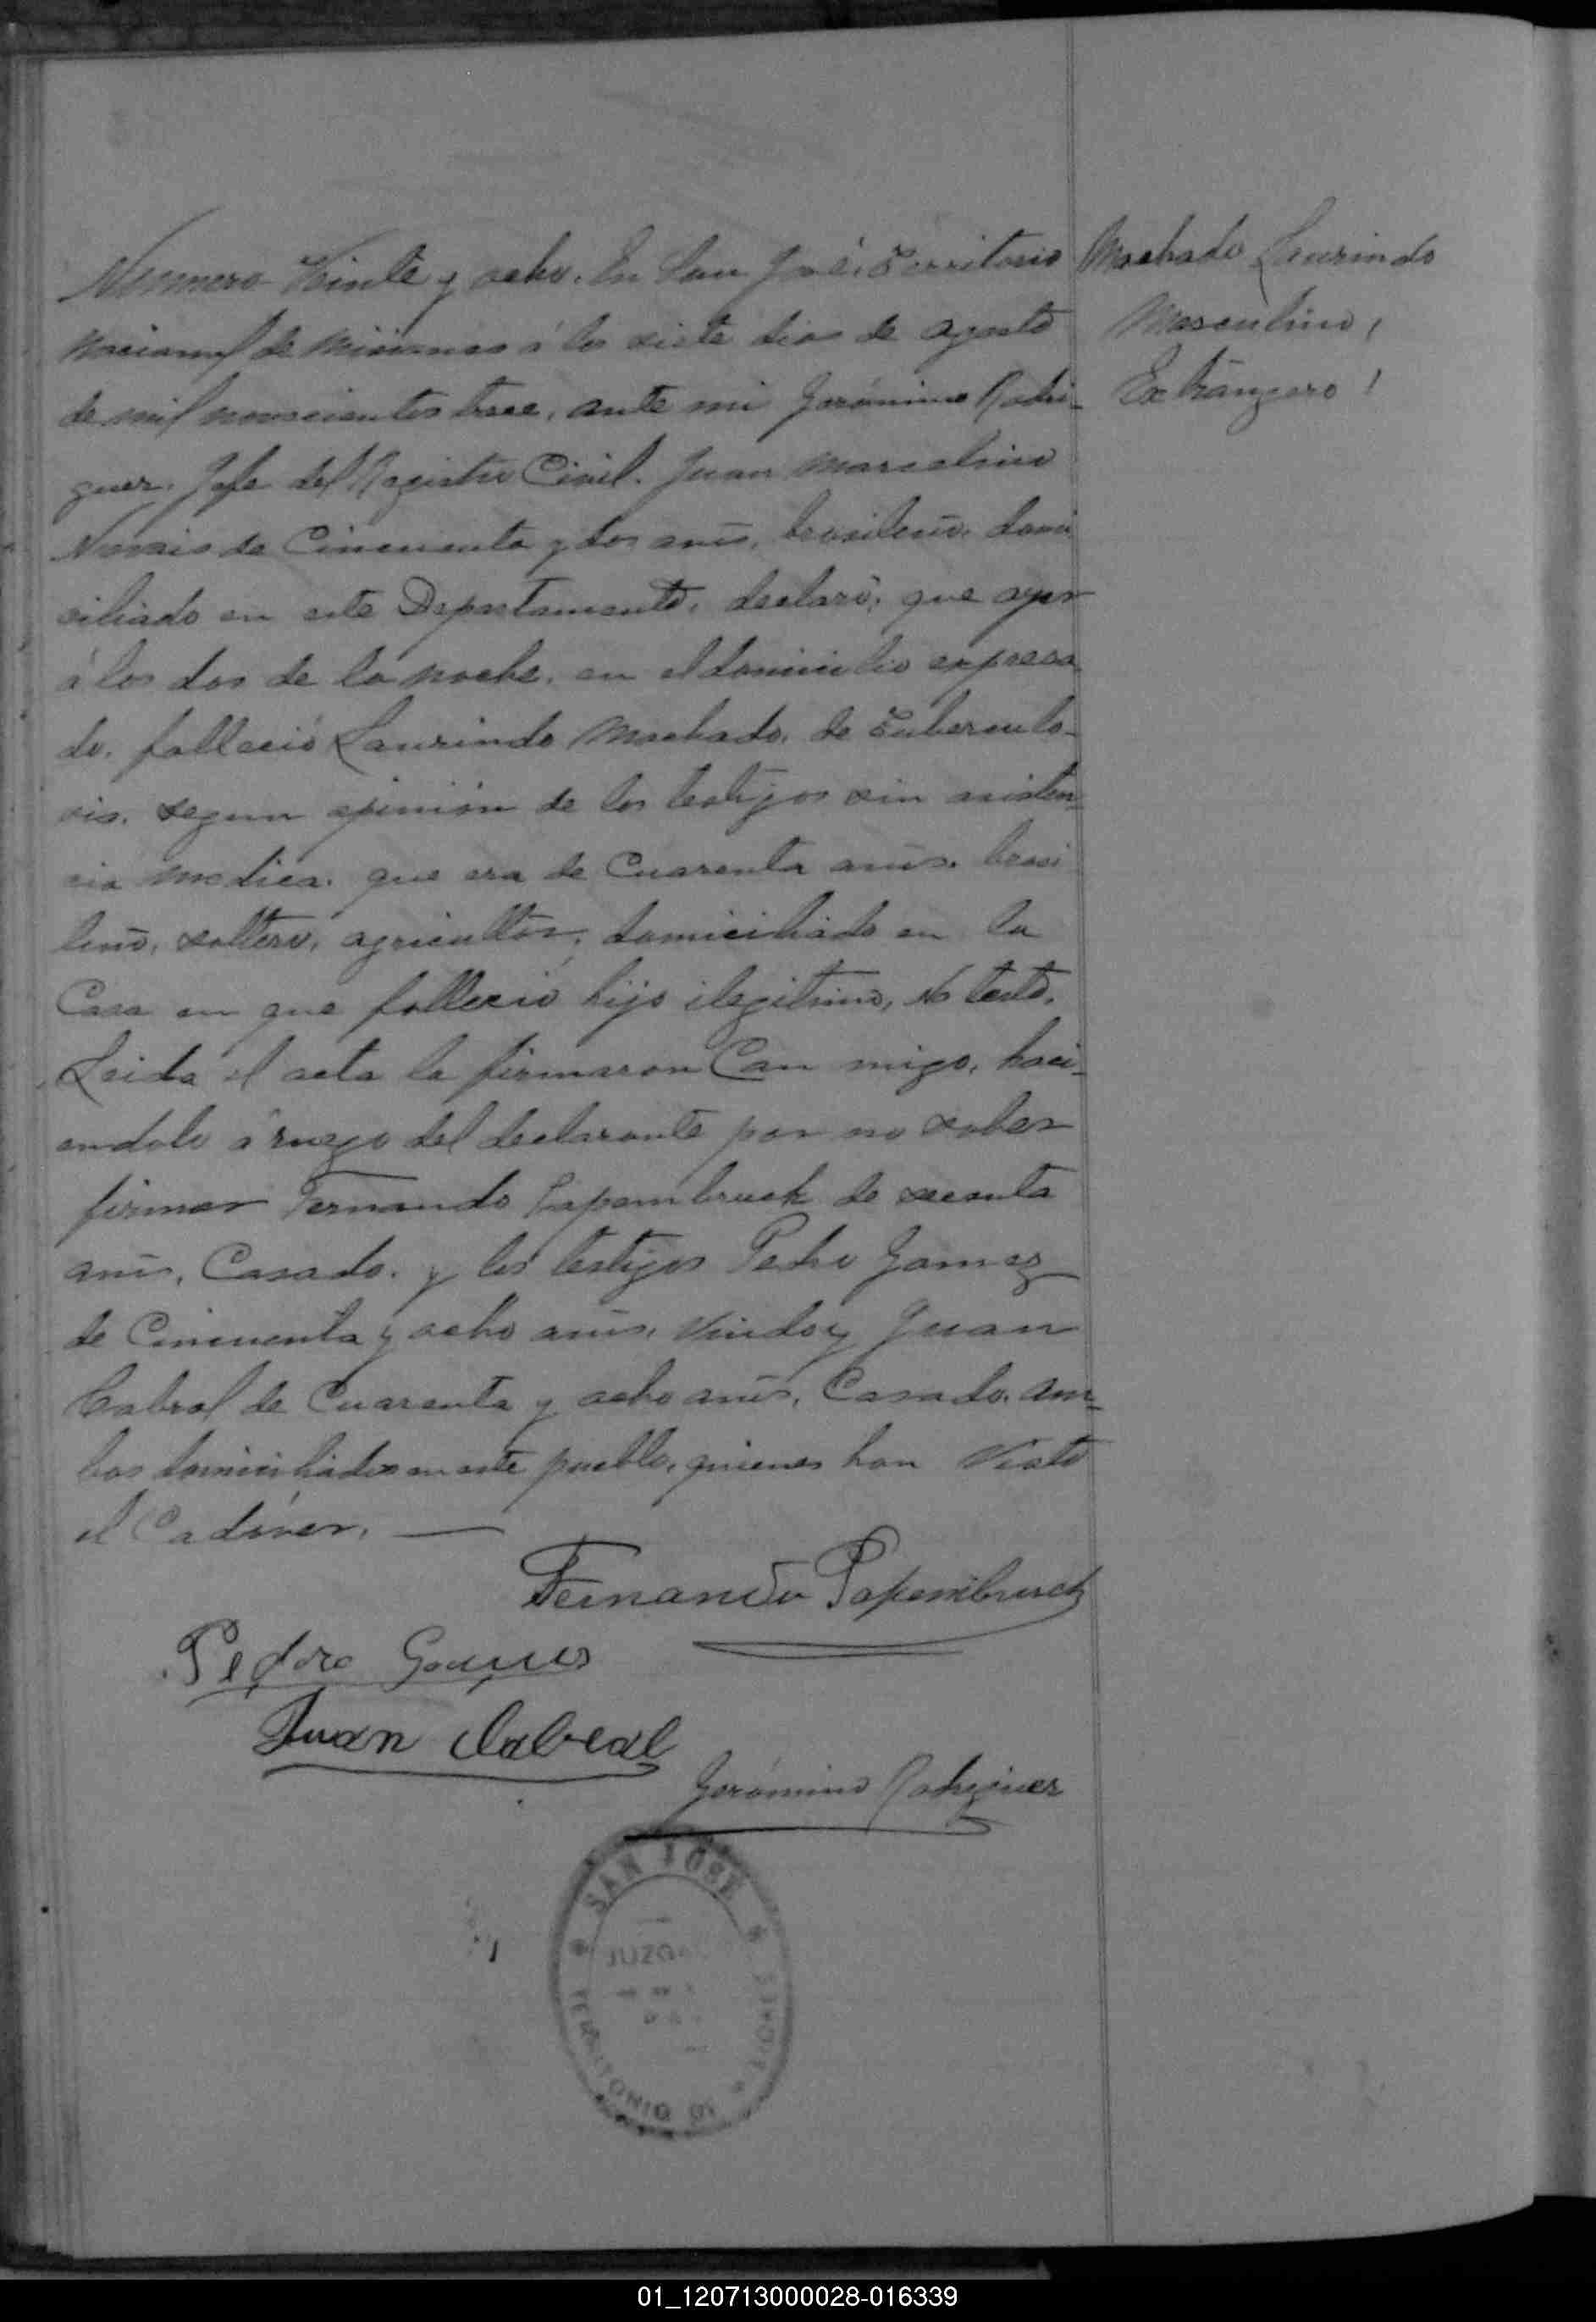 Machado Laurindo
Masculino,
Extrangero!
Numero Veinte y ocho. En San José, Territorio
Nacional de Misiones á los siete dias de agosto
de mil novecientos trece, ante mi Gerónimo Rodri-
guez. Jefe del Registro Civil. Juan Marcelino
de Cincuenta y dos anũs, brasilenũ, domi
ciliado en este Departamento, declaró; que ayer
á las dos de la noche, en el domicilio expresa
do, fallació Laurindo Machado, de Tuberculo-
sis, segun opinión de los testigos sin asisten-
cia medica, que era de Cuarenta anũs, brasi
lenũ, soltero, agricultor, domiciliado en la
Casa en que falleció hijo ilegitimo, No testó,
Leida el acta la firmaron Con migo, haci-
endolo á ruego del declarante por no saber
firmar Fernando Papembruck de secenta
anũs, Casado. y los testigos Pedro Gomez
de Cincuenta y ocho anũs, Viudo y Juan
Cabral de Cuarenta y ocho anũs, Casado, am-
bos domiciliados en este pueblo, quienes han Visto
el Cadáver. —
Fernando Papembruck
Pedro Gomes
Juan Cabral
Gerónimo Rodriguez
SAN JOSE
TERRITORIO DE
01_120713000028-016339